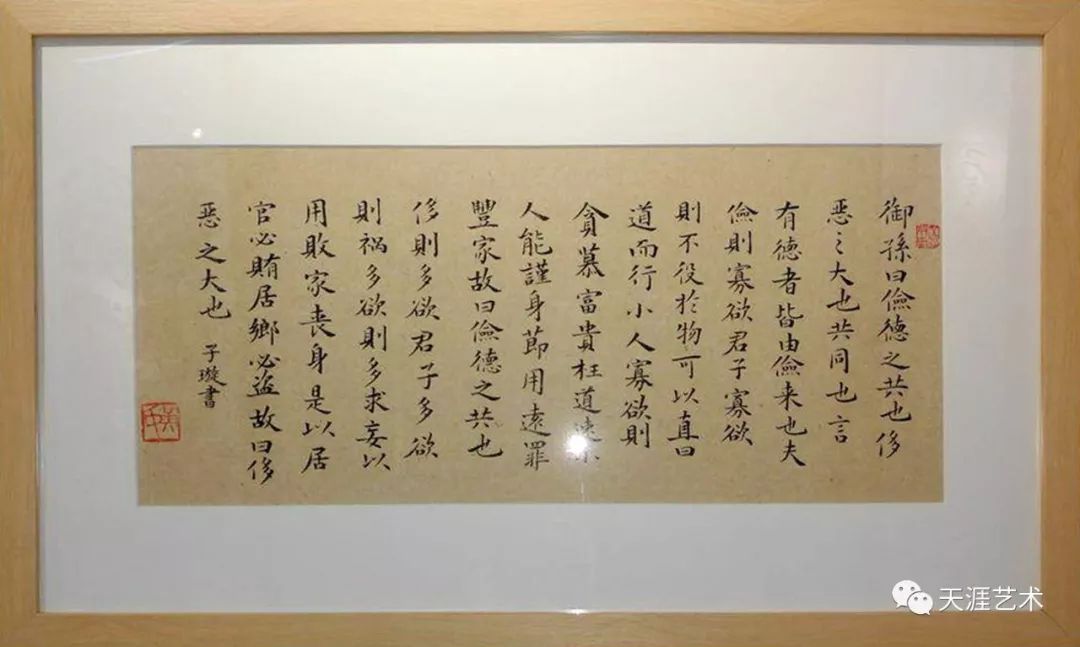 御孫曰儉德之共也侈
惡〻大也共同也言
有德者皆由儉来也夫
儉則寡欲君子寡欲
則不役於物可以直曰
道而行小人寡欲則
貪慕富貴枉道速
人能謹身節用遠罪
豐家故曰儉德之共也
侈則多欲君子多欲
則祸多欲則多求妄以
用敗家丧身是以居
官必賄居鄉必盜故曰侈
惡之大也
子璇書
天涯艺术